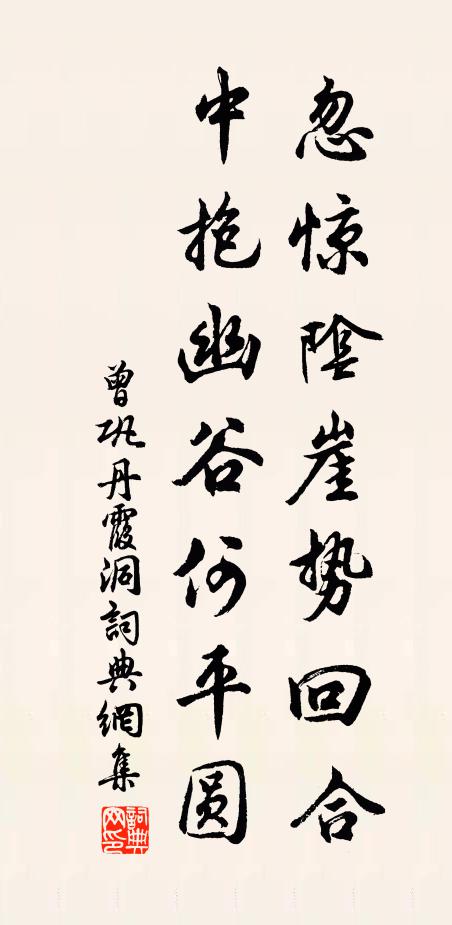 忽惊陰崖势回合
中抱幽谷何平圆
曾巩丹霞洞詞典網集
詞典网印